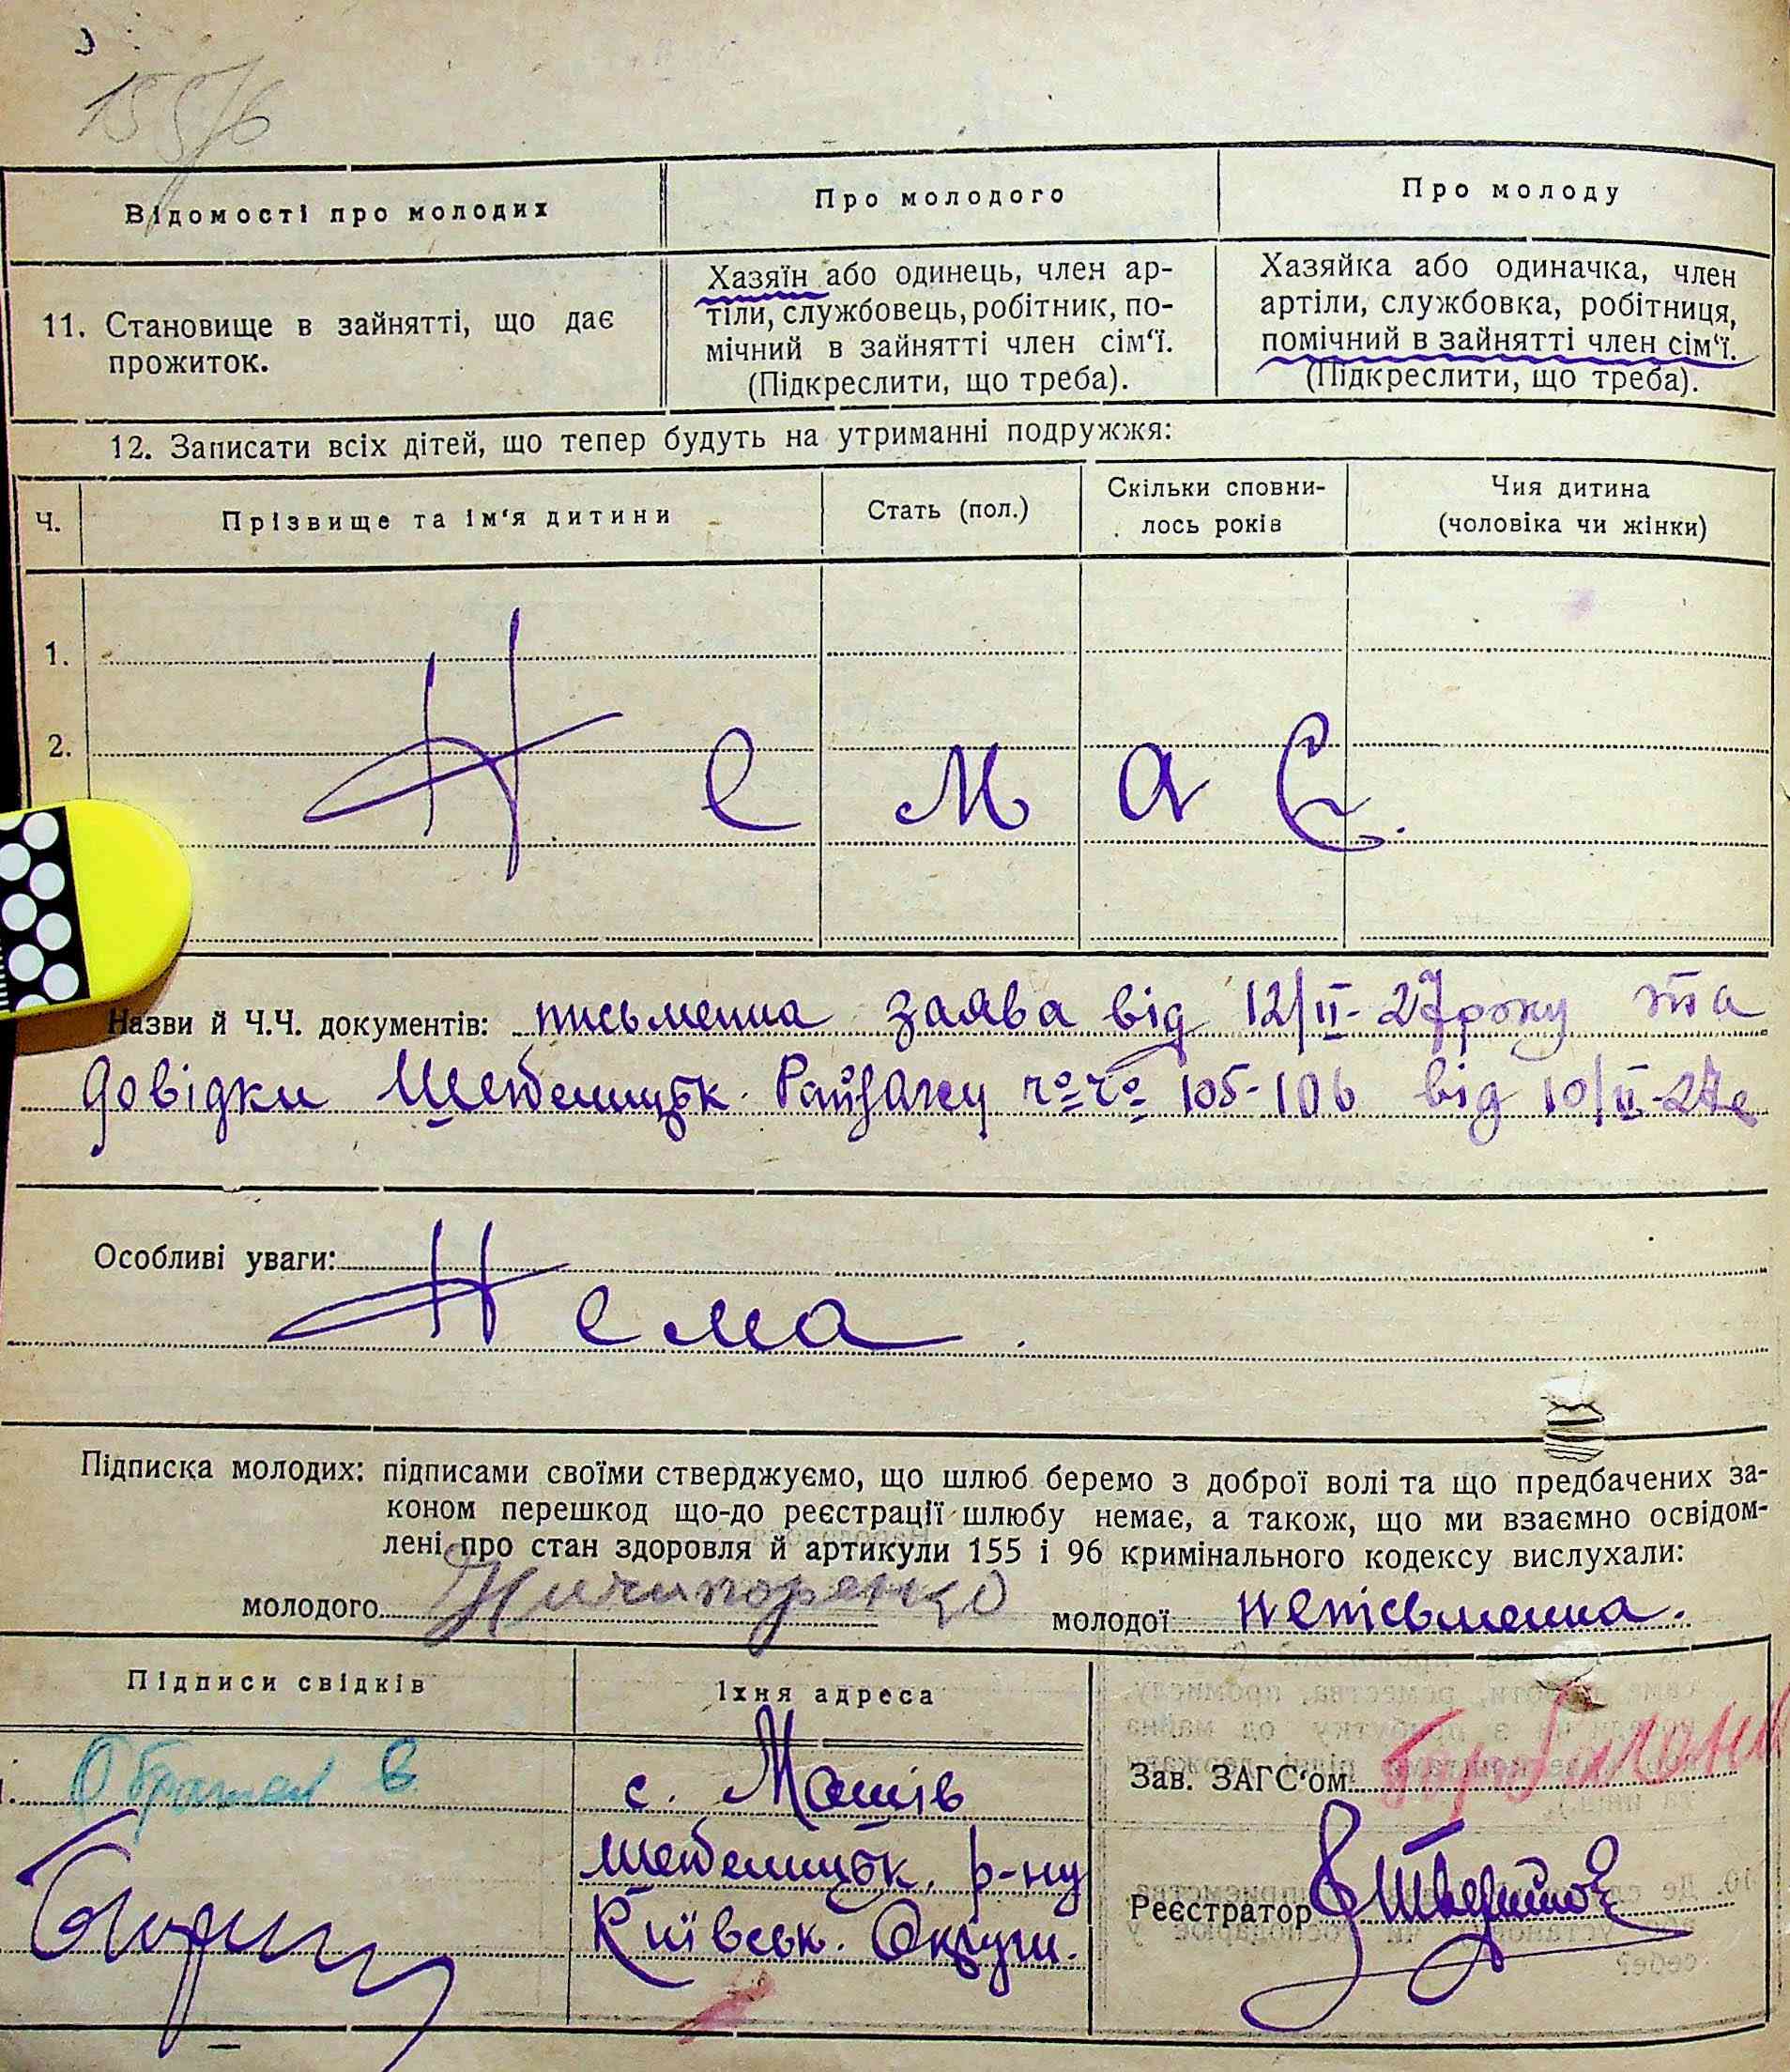 155/6
Відомості про молодих
Про молодого
Про молоду
11. Становище в зайнятті, що дає
прожиток.
Хазяїн або одинець, член ар-
тіли, службовець, робітник, по-
мічний в зайнятті член сім'ї.
(Підкреслити, що треба).
Хазяйка або одиначка, член
артіли, службовка, робітниця,
помічний в зайнятті член сім'ї.
(Підкреслити, що треба).
12. Записати всіх дітей, що тепер будуть на утриманні подружжя:
Ч.
Прізвище та ім'я дитини
Стать (пол.)
Скільки сповни-
лось років
Чия дитина
(чоловіка чи жінки)
1.
2.
Немає.
Назви й Ч.Ч. документів: письменна заява від 12/II-27 року та
довідки Райзагсу ч.ч. 105-106 від 10/II-27
Особливі уваги:
Нема.
Підписка молодих: підписами своїми стверджуємо, що шлюб беремо з доброї волі та що предбачених за-
коном перешкод що-до реєстрації шлюбу немає, а також, що ми взаємно освідом-
лені про стан здоровля й артикули 155 і 96 кримінального кодексу вислухали:
молодого Ничипоренко молодої неписьменна.
Підписи свідків
Їхня адреса
с.
р-ну
Київськ. Округи.
Зав. ЗАГС'ом
Реєстратор